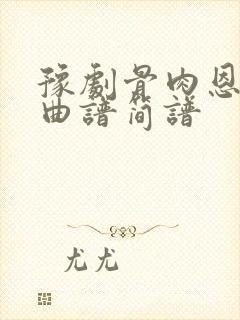 豫劇骨肉恩
曲譜簡譜
尤尤